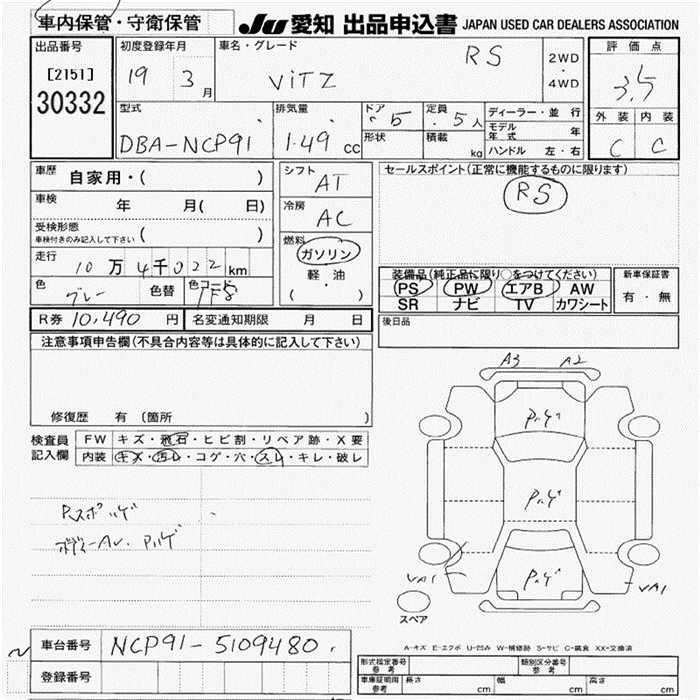 車内保管・守衛保管 JU 愛知 出品申込書 JAPAN USED CAR DEALERS ASSOCIATION
出品番号 初度登録年月 車名・グレード 評価点
[2151] 30332 19 3 月 ViTZ RS 2WD・4WD 3.5
型式 排気量 ドア 5 定員 5 人 ディーラー・並行 外装 内装
DBA-NCP91 1.49 cc 形状 積載 kg モデル年式 年 C C
ハンドル 左・右
車歴 自家用・( ) シフト AT セールスポイント(正常に機能するものに限ります)
車検 年 月( 日) 冷房 AC RS
受検形態 ( )
車検付きのみ記入して下さい
燃料 ガソリン
走行 10万4千022km 軽油 ( ・ )
装備品(純正品に限り○をつけてください) 新車保証書
色 グレー 色替 色コード PS PW エアB AW 有・無
SR ナビ TV カワシート
R券 10,490 円 名変通知期限 月 日 後日品
注意事項申告欄(不具合内容等は具体的に記入して下さい)
A3 A2
修復歴 有 (箇所 )
検査員 FW キズ・飛石・ヒビ割・リペア跡・X要
記入欄 内装 キズ・汚レ・コゲ・穴・スレ・キレ・破レ
VA1 VA1
スペア
車台番号 NCP91-5109480
A-キズ E-エクボ U-凹み W-補修跡 S-サビ C-腐食 XX-交換済
登録番号
形式指定番号 参考 類別区分番号 参考
車庫証明用 参考 長さ cm 幅 cm 高さ cm